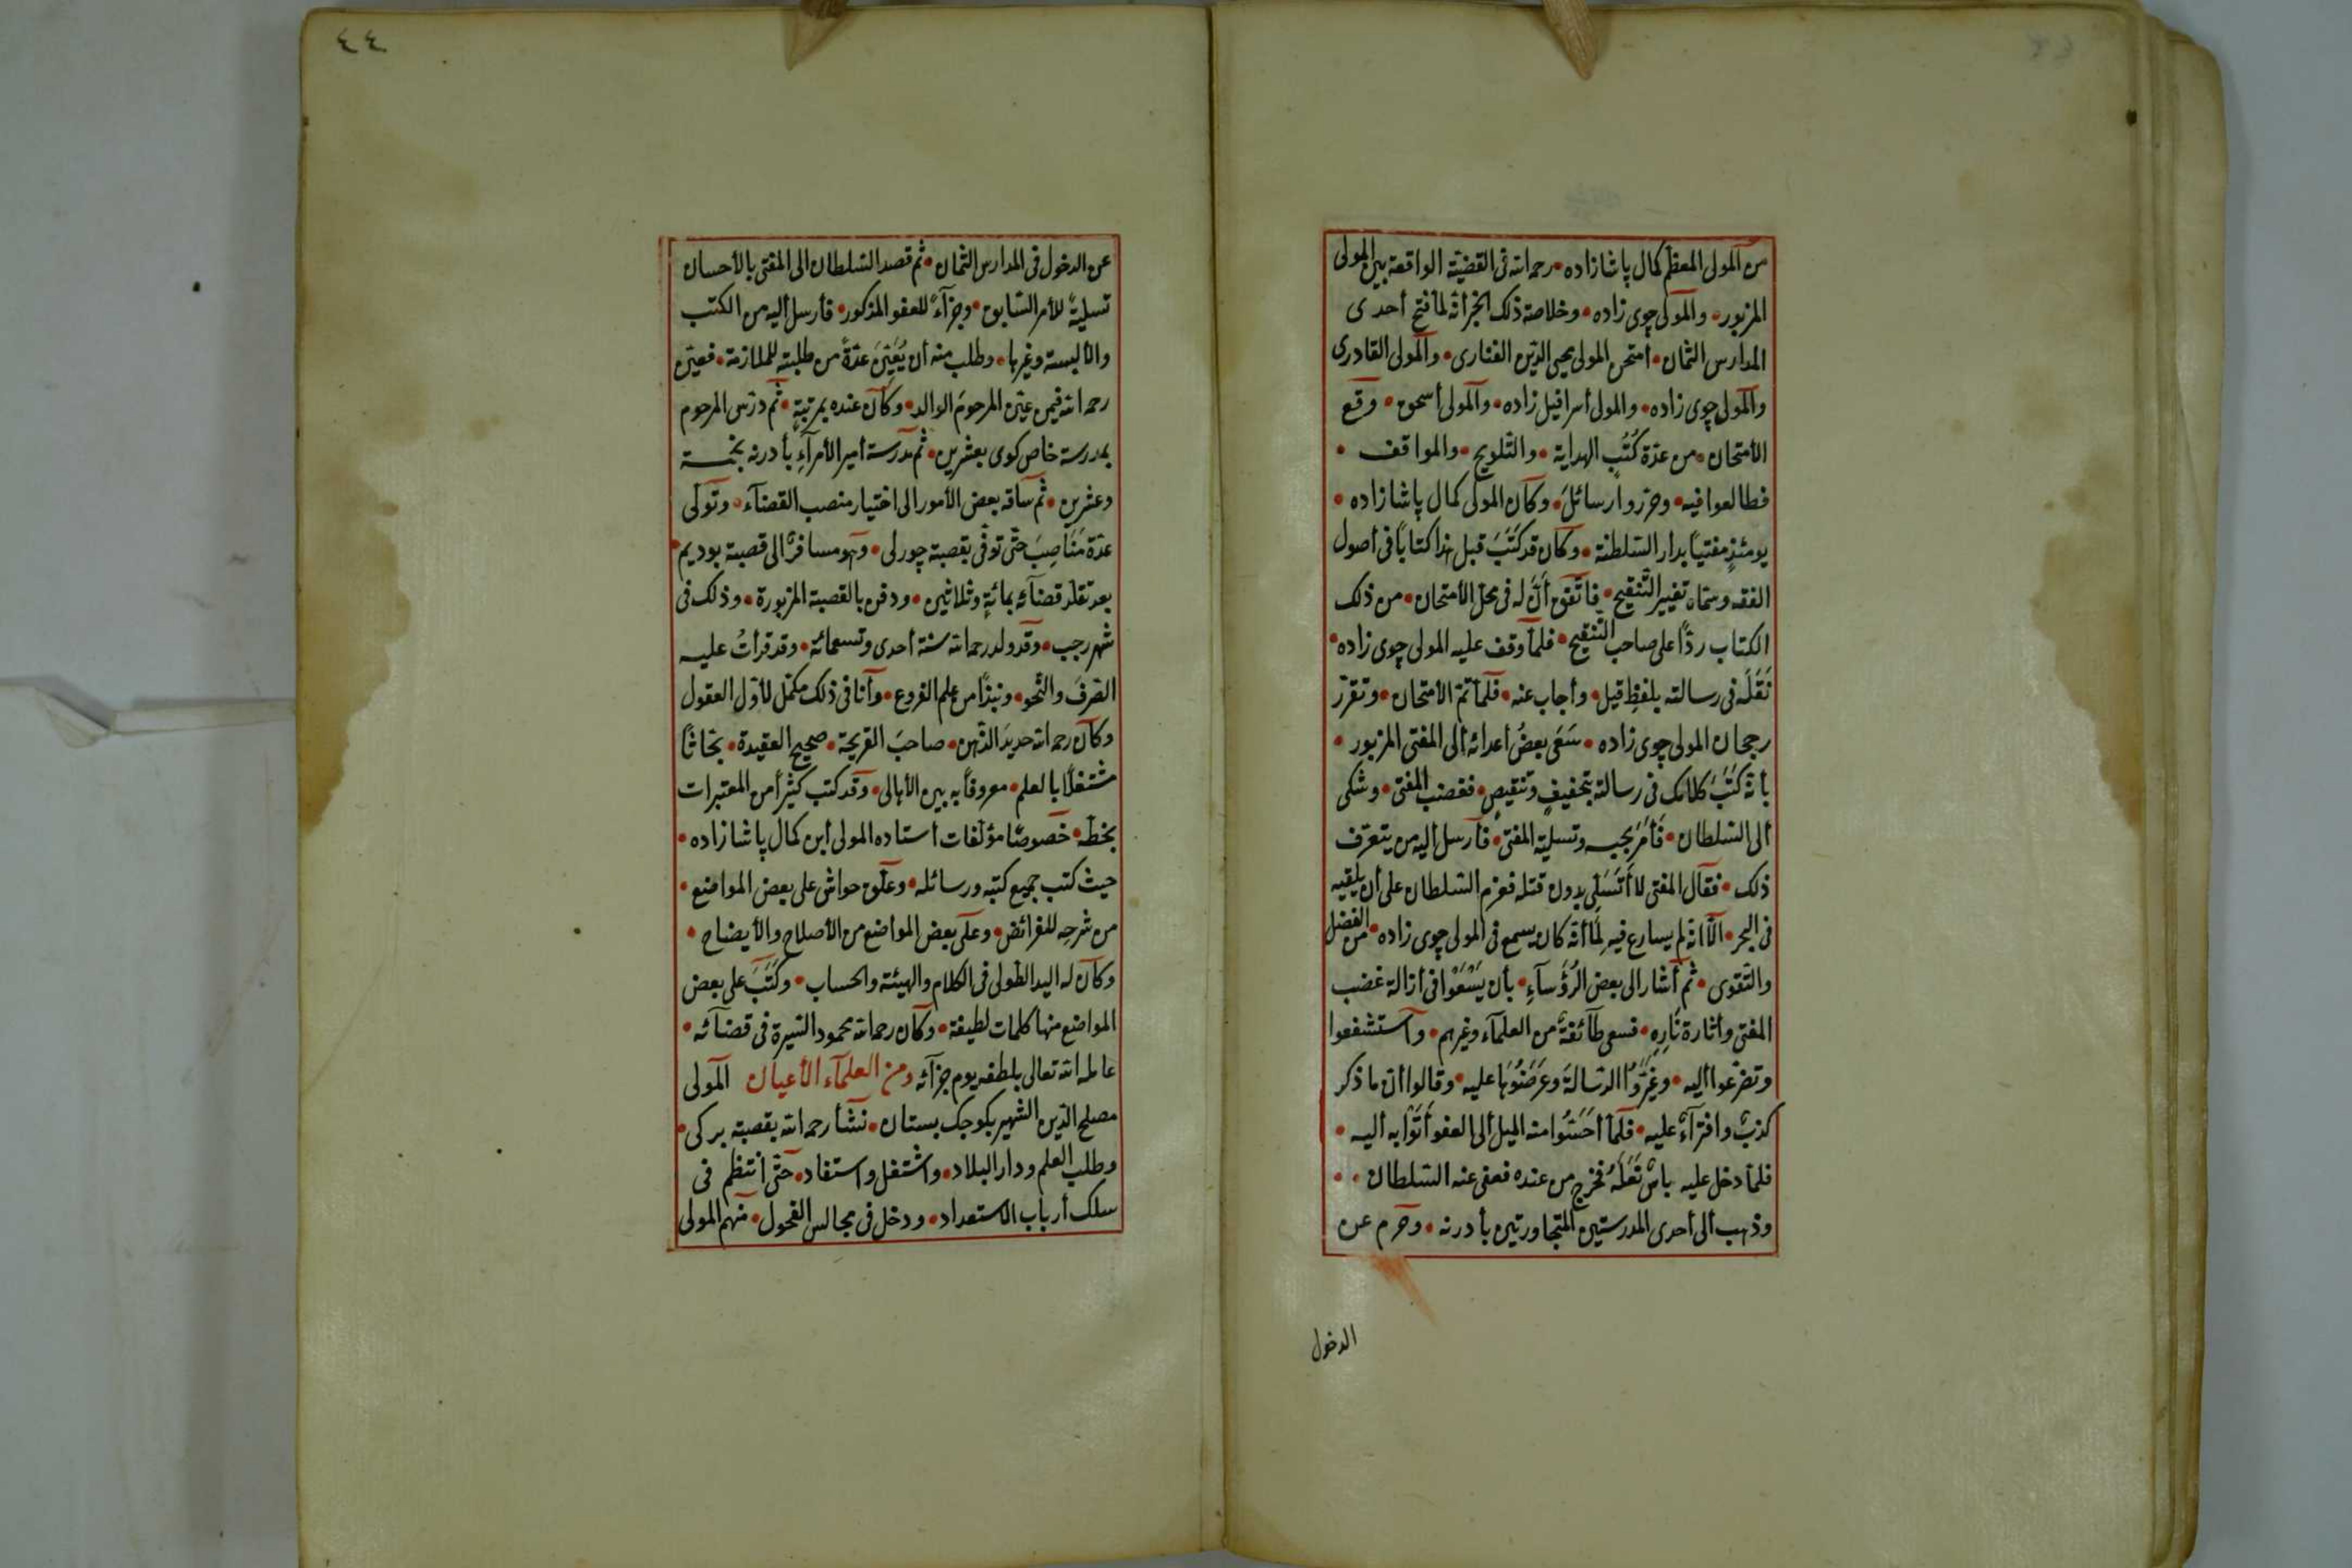 من المولى المعظم كمال پاشا زاده • رحمه الله فى القضية الواقعة بين المولى
المزبور • والمولى چوى زاده • وخلاصة ذلك الخبر أنه لما فتح أحدى
المدارس الثمان • أمتحن المولى محيى الدين الفنارى • والمولى القادرى
والمولى چوى زاده • والمولى أسرافيل زاده • والمولى أسحق • وقع
الأمتحان • من عدة كُتُب الهداية • والتلويح • والمواقف •
فطالعوا فيه • وحرروا رسائلَ • وكان المولى كمال پاشا زاده •
يومئذٍ مفتيًا بدار السلطنة • وكان قد كَتَبَ قبل هذا كتابًا فى أصول
الفقه وسماه تغيير التنقيح • فاتفق أنّ له فى محل الأمتحان • من ذلك
الكتاب ردًّا على صاحب التنقيح • فلما وقف عليه المولى چوى زاده •
نَقَلَه فى رسالته بلفظِ قيل • وأجاب عنه • فلما تمّ الأمتحان • وتقرّر
رجحان المولى چوى زاده • سَعَى بعضُ أعدائه ألى المفتى المزبور •
بأنه كَتَبَ كلامك فى رسالته بتخفيفٍ وتنقيصٍ • فغضب المفتى • وشكى
ألى السلطان • فَأَمَرَ بحبسه وتسلية المفتى • فأرسل اليه من يتعرّف
ذلك • فقال المفتى لا أَتَسَلّى بدون قتله فعزم السلطان على أن يلقيه
فى البحر • الّا انه لم يسارع فيه لِمَا أنه كان يسمع فى المولى چوى زاده • من الفضل
والتقوى • ثم أشار الى بعض الرُؤَسآءِ • بأن يَسْعَوْا فى ازالة غضب
المفتى وأثارة نَارِهِ • فسعى طآئفةٌ من العلمآء وغيرهم • وآستشفعوا
وتضرّعوا أليه • وغَيَّرُوا الرسالةَ وعَرَضُوهَا عليه • وقالوا أن ما ذكر
كذبٌ وافترآءٌ عليه • فلمّا أحَسُّوا منه الميل ألى العفو أَتَوْا به أليه •
فلما دخل عليه باس نَعْلَهُ فخرج من عنده فعفى عنه السلطان • •
وذهب ألى أحدى المدرستين المتجاورتين بأدرنه • وحرم عن
الدخول
٤٤
عن الدخول فى المدارس الثمان • ثم قصد السلطان الى المفتى بالأحسان
تسليةً للأمر السابق • وجزآءً للعفو المذكور • فأرسل أليه من الكتب
والألبسة وغيرها • وطلب منه أن يُعَيِّنَ عدّةً من طلبته للملازمة • فعين
رحمه الله فيمن عيّن المرحومَ الوالد • وكان عنده بمرتبةٍ • ثم درّس المرحوم
بمدرسة خاص كوى بعشرين • ثم بمدرسة أمير الأمرآءِ بأدرنه بخمسة
وعشرين • ثم ساقه بعض الأمور الى اختيار منصب القضآء • وتولّى
عدّة مَنَاصِبَ حتّى توفّى بقصبة چورلى • وهو مسافرٌ الى قصبة بوديم •
بعد تقلّد قضآئه بمائةٍ وثلاثين • ودفن بالقصبة المزبورة • وذلك فى
شهر رجب • وقد ولد رحمه الله سنة أحدى وتسعمائة • وقد قرأتُ عليه
الصرفَ والنحو • ونبذًا من علم الفروع • وأنا فى ذلك مكمّل لأوّل العقول
وكان رحمه الله حديدَ الذهن • صاحبَ القريحة • صحيح العقيدة • بحّاثًا
مشتغلًا بالعلم • معروفًا به بين الأهالى • وقد كتب كثيرًا من المعتبرات
بخطّه • خصوصًا مؤلّفات أستاده المولى أبن كمال پاشا زاده •
حيث كتب جميع كتبه ورسائله • وعلّق حواشى على بعض المواضع •
من شرحِه للفرائض • وعلى بعض المواضع من الأصلاح والأيضاح •
وكان له اليد الطولى فى الكلام والهيئة والحساب • وكَتَبَ على بعض
المواضع منها كلمات لطيفة • وكان رحمه الله محمود السيرة فى قضآئه •
عامله الله تعالى بلطفه يوم جزآئه ومن العلمآء الأعيان المولى
مصلح الدين الشهير بكوجك بستان • نشأ رحمه الله بقصبة بركى •
وطلب العلم ودار البلاد • واشتغل واستفاد • حتّى أنتظم فى
سلك أرباب الاستعداد • ودخل فى مجالس الفحول • منهم المولى